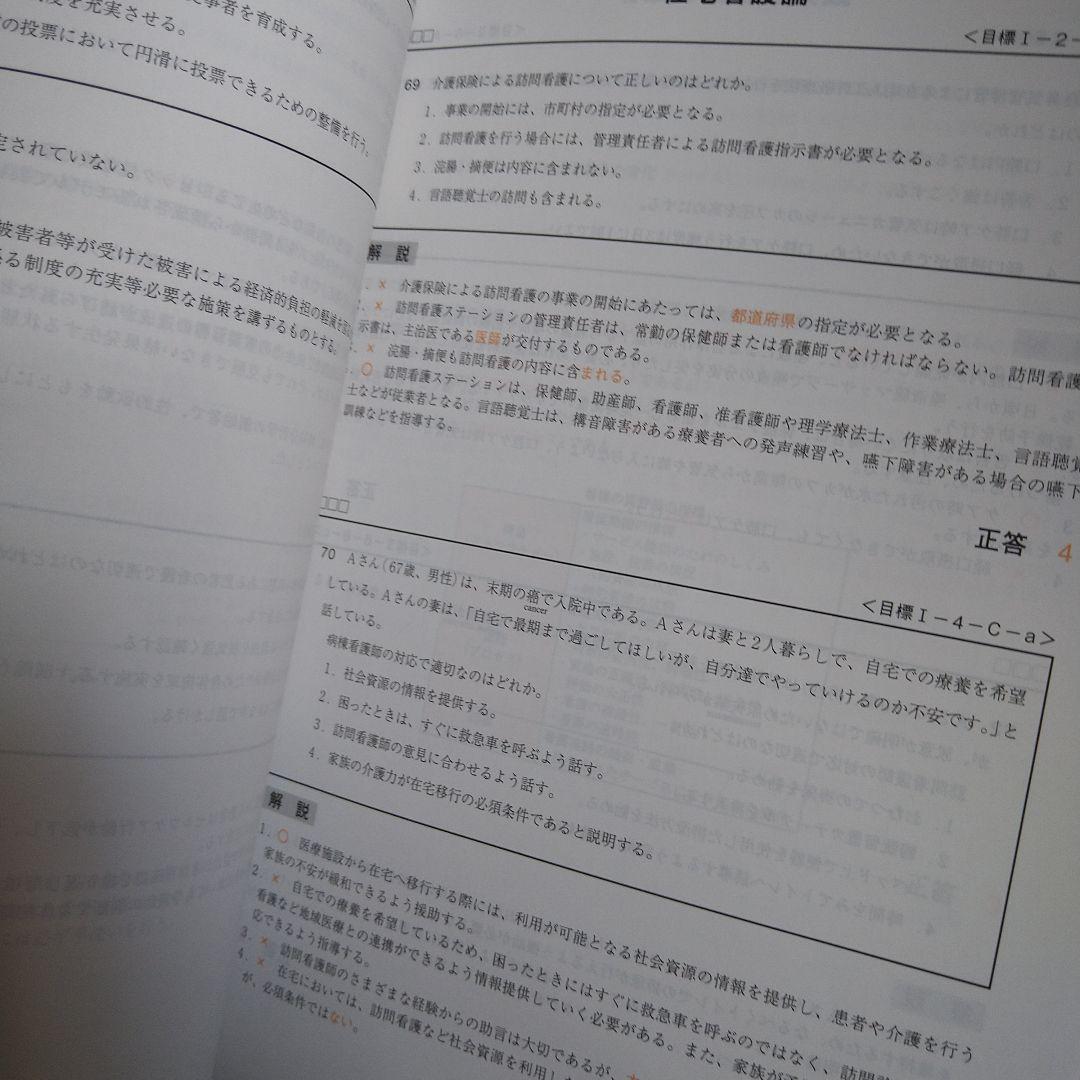 事者を育成する。
度を充実させる。
の投票において円滑に投票できるための整備を行う。
定されていない。
被害者等が受けた被害による経済的負担の軽減を図
る制度の充実等必要な施策を講ずるものとする。
在宅看護論
<目標Ⅰ-2-
69 介護保険による訪問看護について正しいのはどれか。
1. 事業の開始には、市町村の指定が必要となる。
2. 訪問看護を行う場合には、管理責任者による訪問看護指示書が必要となる。
3. 浣腸・摘便は内容に含まれない。
4. 言語聴覚士の訪問も含まれる。
解 説
× 介護保険による訪問看護の事業の開始にあたっては、都道府県の指定が必要となる。
. × 訪問看護ステーションの管理責任者は、常勤の保健師または看護師でなければならない。訪問看護
示書は、主治医である医師が交付するものである。
. × 浣腸・摘便も訪問看護の内容に含まれる。
. ○ 訪問看護ステーションは、保健師、助産師、看護師、准看護師や理学療法士、作業療法士、言語聴覚
士などが従業者となる。言語聴覚士は、構音障害がある療養者への発声練習や、嚥下障害がある場合の嚥下
訓練などを指導する。
正答 4
<目標Ⅰ-4-C-a>
70 Aさん(67歳、男性)は、末期の癌で入院中である。Aさんは妻と2人暮らしで、自宅での療養を希望
cancer
している。Aさんの妻は、「自宅で最期まで過ごしてほしいが、自分達でやっていけるのか不安です。」と
話している。
病棟看護師の対応で適切なのはどれか。
1. 社会資源の情報を提供する。
2. 困ったときは、すぐに救急車を呼ぶよう話す。
3. 訪問看護師の意見に合わせるよう話す。
4. 家族の介護力が在宅移行の必須条件であると説明する。
解 説
1. ○ 医療施設から在宅へ移行する際には、利用が可能となる社会資源の情報を提供し、患者や介護を行う
家族の不安が緩和できるよう援助する。
2. × 自宅での療養を希望しているため、困ったときにはすぐに救急車を呼ぶのではなく、訪問
看護など地域医療との連携ができるよう情報提供していく必要がある。また、家族が
応できるよう指導する。
3. × 訪問看護師のさまざまな経験からの助言は大切であるが、
4. × 在宅においては、訪問看護など社会資源を利用し
が、必須条件ではない。